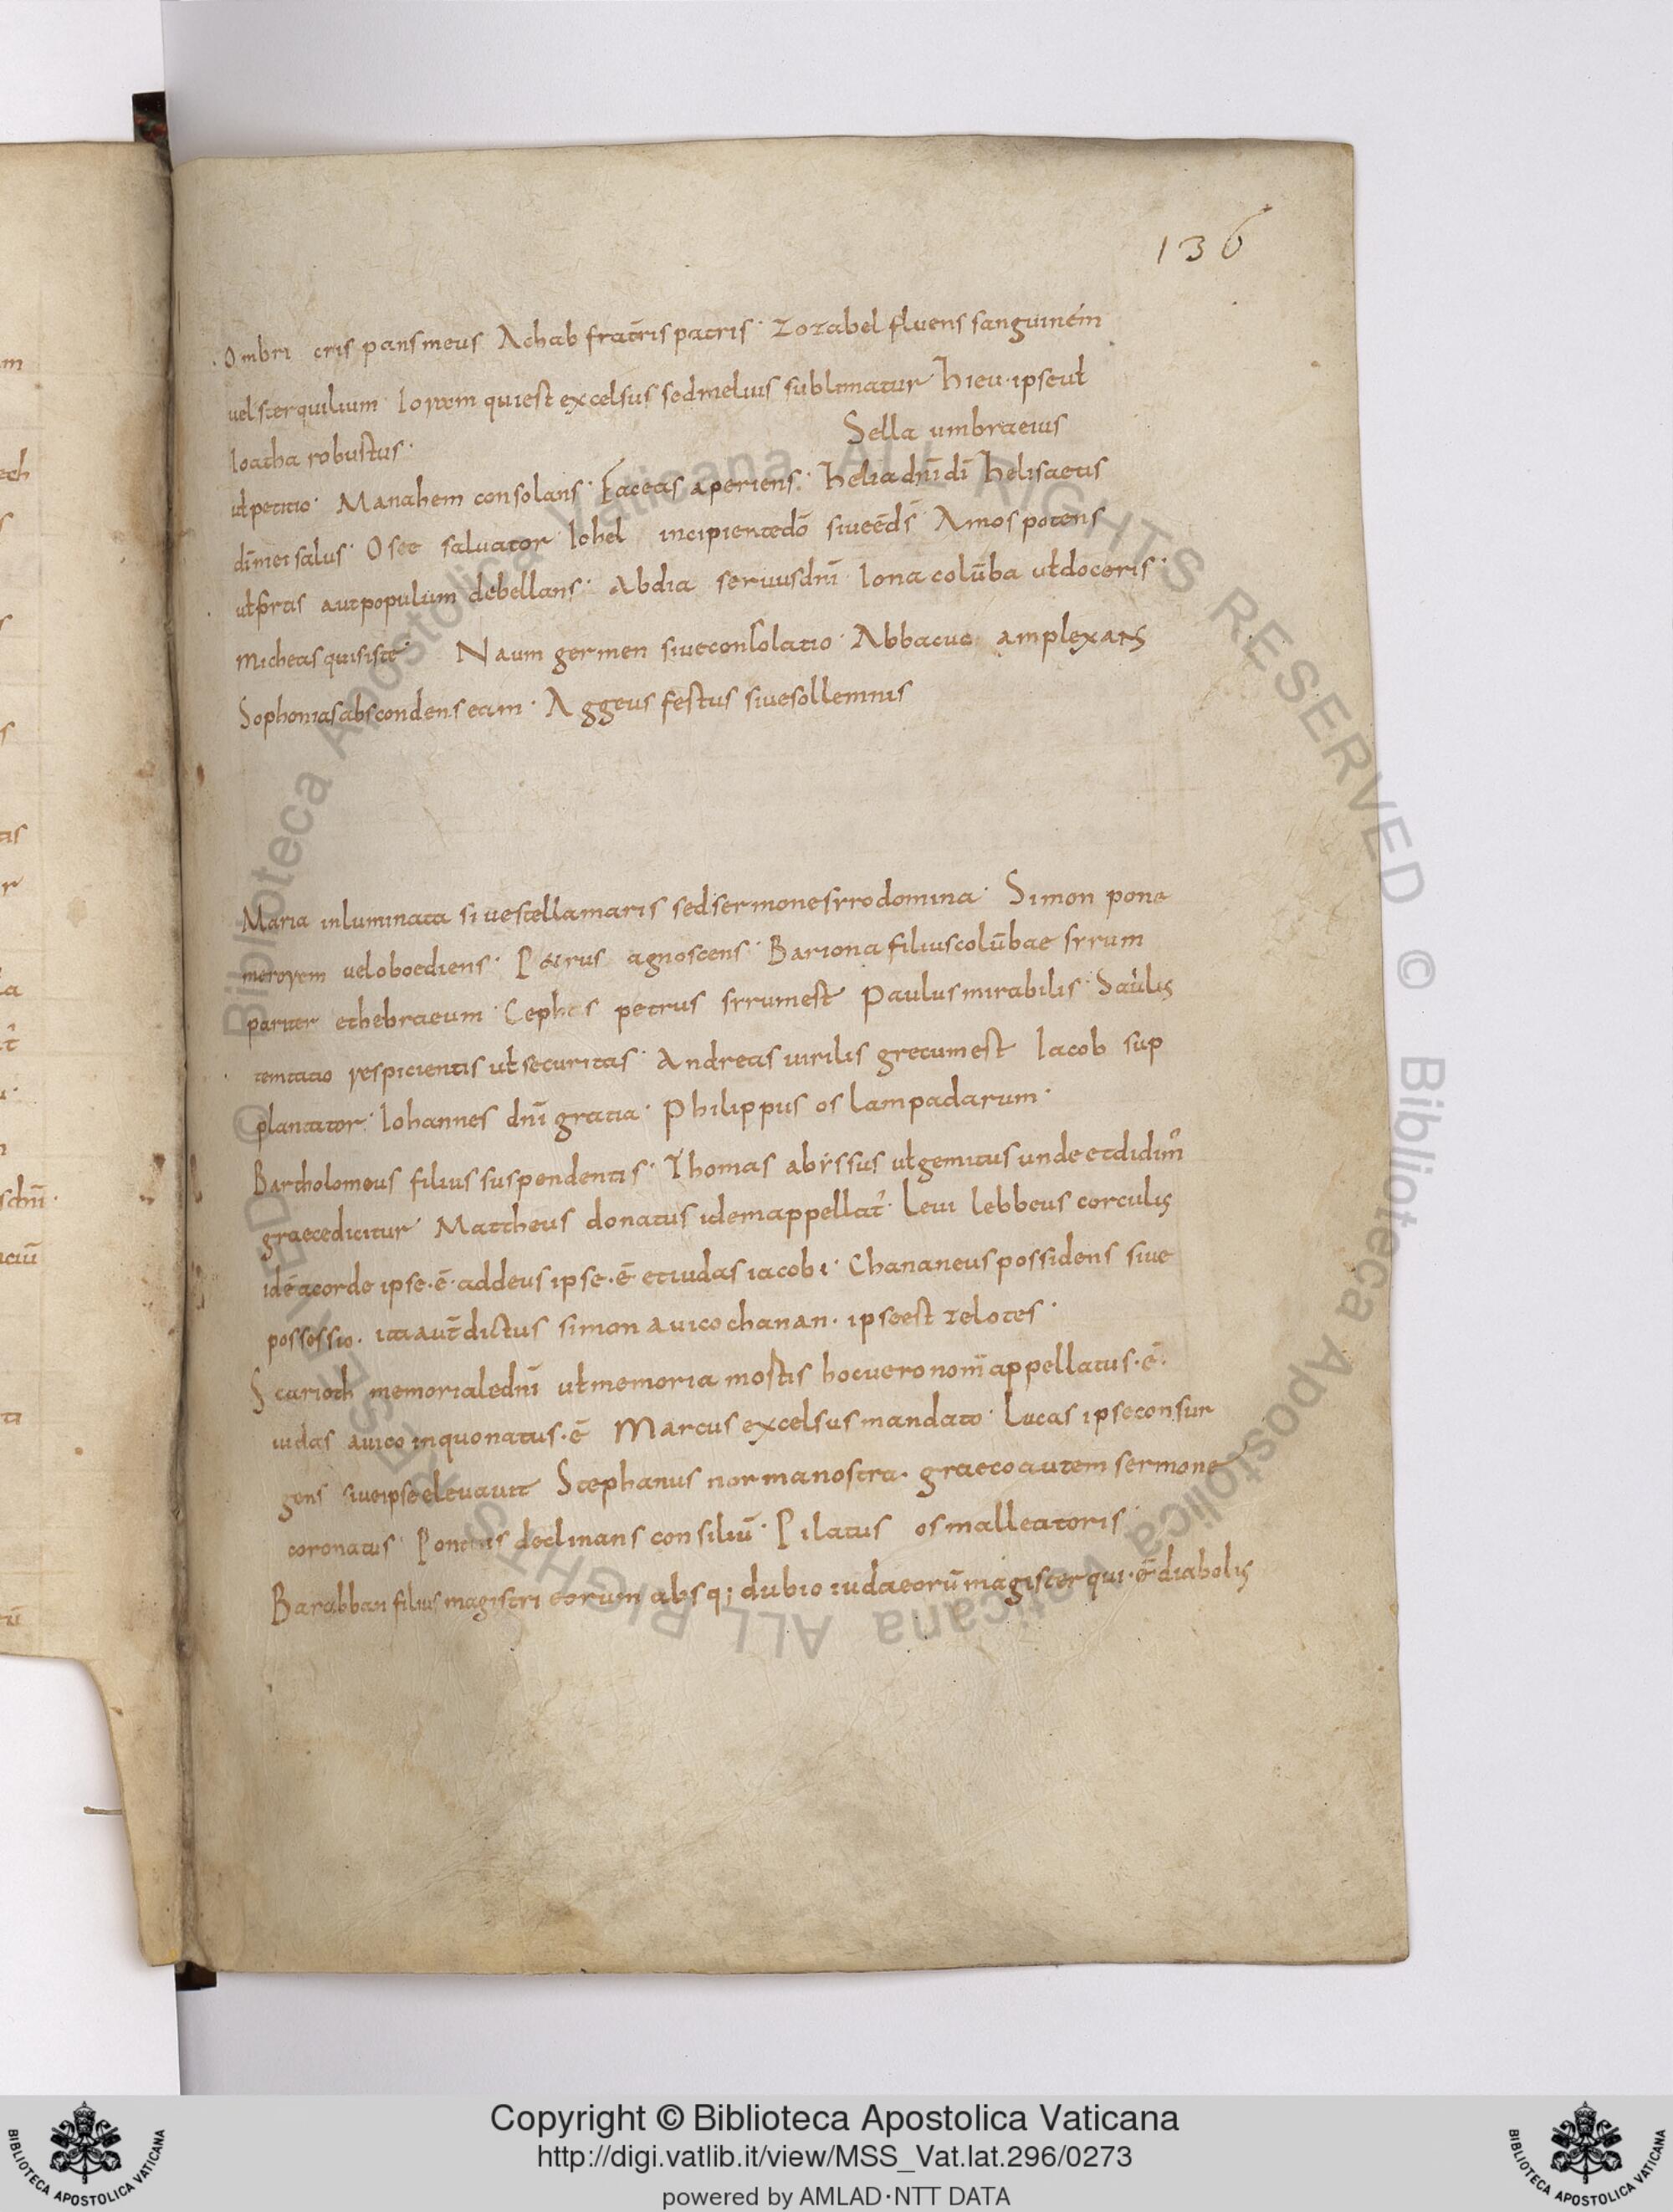 136
Ombri cris pansmeus Achab fratris patris· Zozabel fluens sanguinem
uel sterquilium Ioram qui est excelsus sed melius sublimatur· Hieu· ipse ut
Ioatha robustus·
Sella umbra eius
ut petitio· Manahem consolans· Faceas aperiens· Helia dn̄i dī Helisaeus
dī mei salus· Osee saluator Iohel incipiente dō siue ē ds̄ Amos potens
ut fortis aut populum debellans· Abdia seruus dn̄i Iona colūba ut doceris·
Micheas quis iste· Naum germen siue consolatio· Abbacuc amplexans
Sophonias abscondens eam· Aggeus festus siue sollemnis
Maria inluminata siue stella maris sed sermone syro domina· Simon pone
merorem uel oboediens· Petrus agnoscens· Bariona filius colūbae syrum
pariter et hebraeum· Cephas petrus syrum est Paulus mirabilis· Saulus
temtatio respicientis ut securitas· Andreas uirilis grecum est Iacob sup
plantator· Iohannes dn̄i gratia· Philippus os lampadarum·
Bartholomeus filius suspendentis· Thomas abyssus ut gemitus unde et didim᾽
graece dicitur Mattheus donatus idem appellat᾽· Leui lebbeus corculus
id ē a corde ipse· ē· addeus ipse· ē et iudas iacobi· Chananeus possidens siue
possessio· ita aut̄ dictus simon a uico chanan· ipse est zelotes·
Scarioth memoriale dn̄i ut memoria mostis hoc uero nom̄ appellatus· ē·
iudas a uico in quo natus· ē Marcus excelsus mandato· Lucas ipse consur
gens siue ipse eleuauit Stephanus norma nostra· graeco autem sermone
coronatus· Pontius declinans consiliū· Pilatus os malleatoris·
Barabban filius magistri eorum absq; dubio iudaeorū magister qui· ē diabolus
Copyright © Biblioteca Apostolica Vaticana
http://digi.vatlib.it/view/MSS_Vat.lat.296/0273
powered by AMLAD·NTT DATA
BIBLIOTECA APOSTOLICA VATICANA
BIBLIOTECA APOSTOLICA VATICANA
© Biblioteca Apostolica Vaticana ALL RIGHTS RESERVED
© Biblioteca Apostolica Vaticana ALL RIGHTS RESERVED